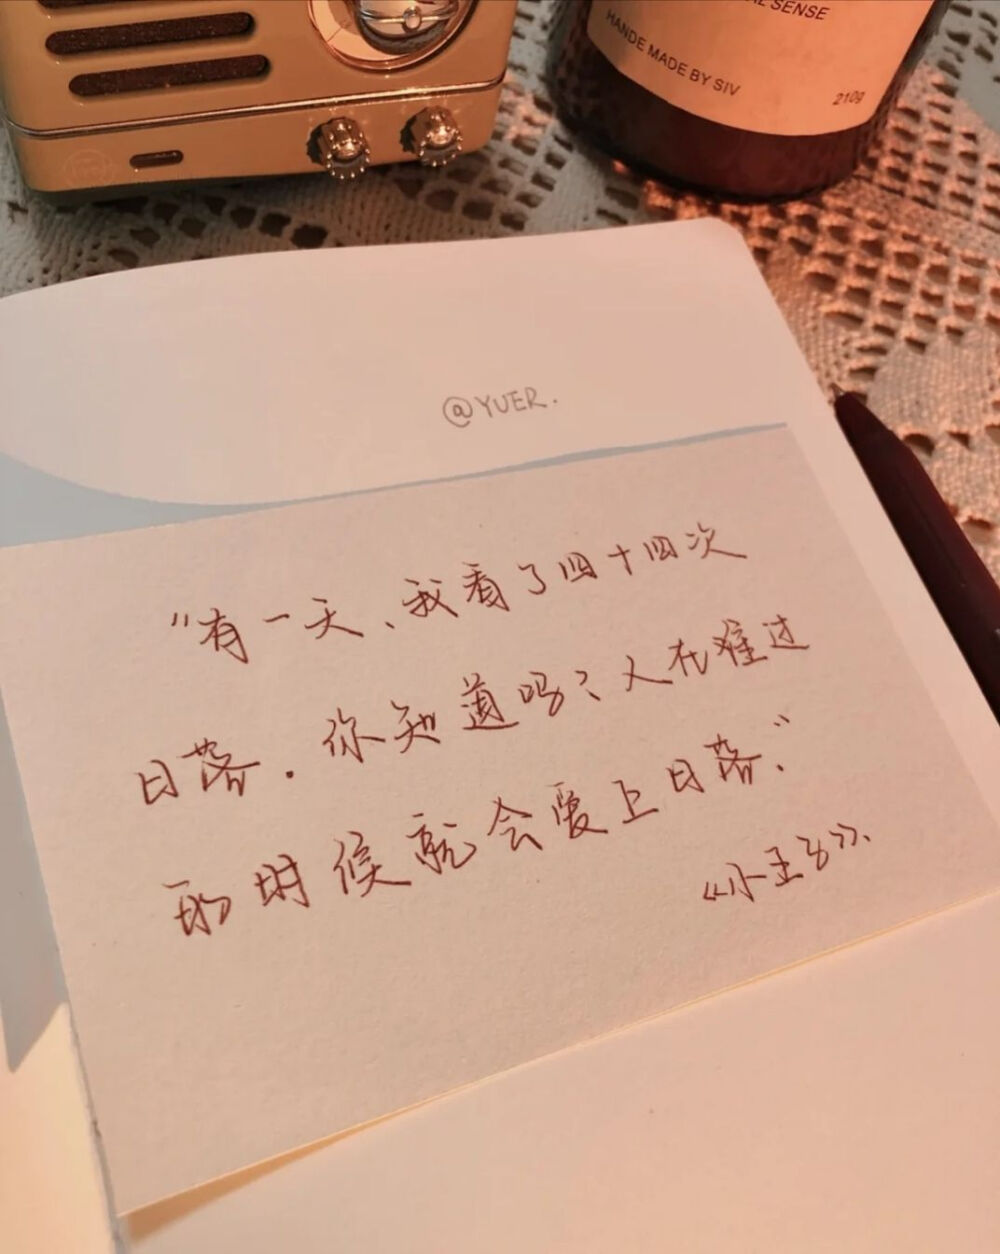 AL SENSE
HANDE MADE BY SIV
210g
@YUER.
“有一天、我看了四十四次
日落.你知道吗?人在难过
的时候就会爱上日落.”
《小王子》.